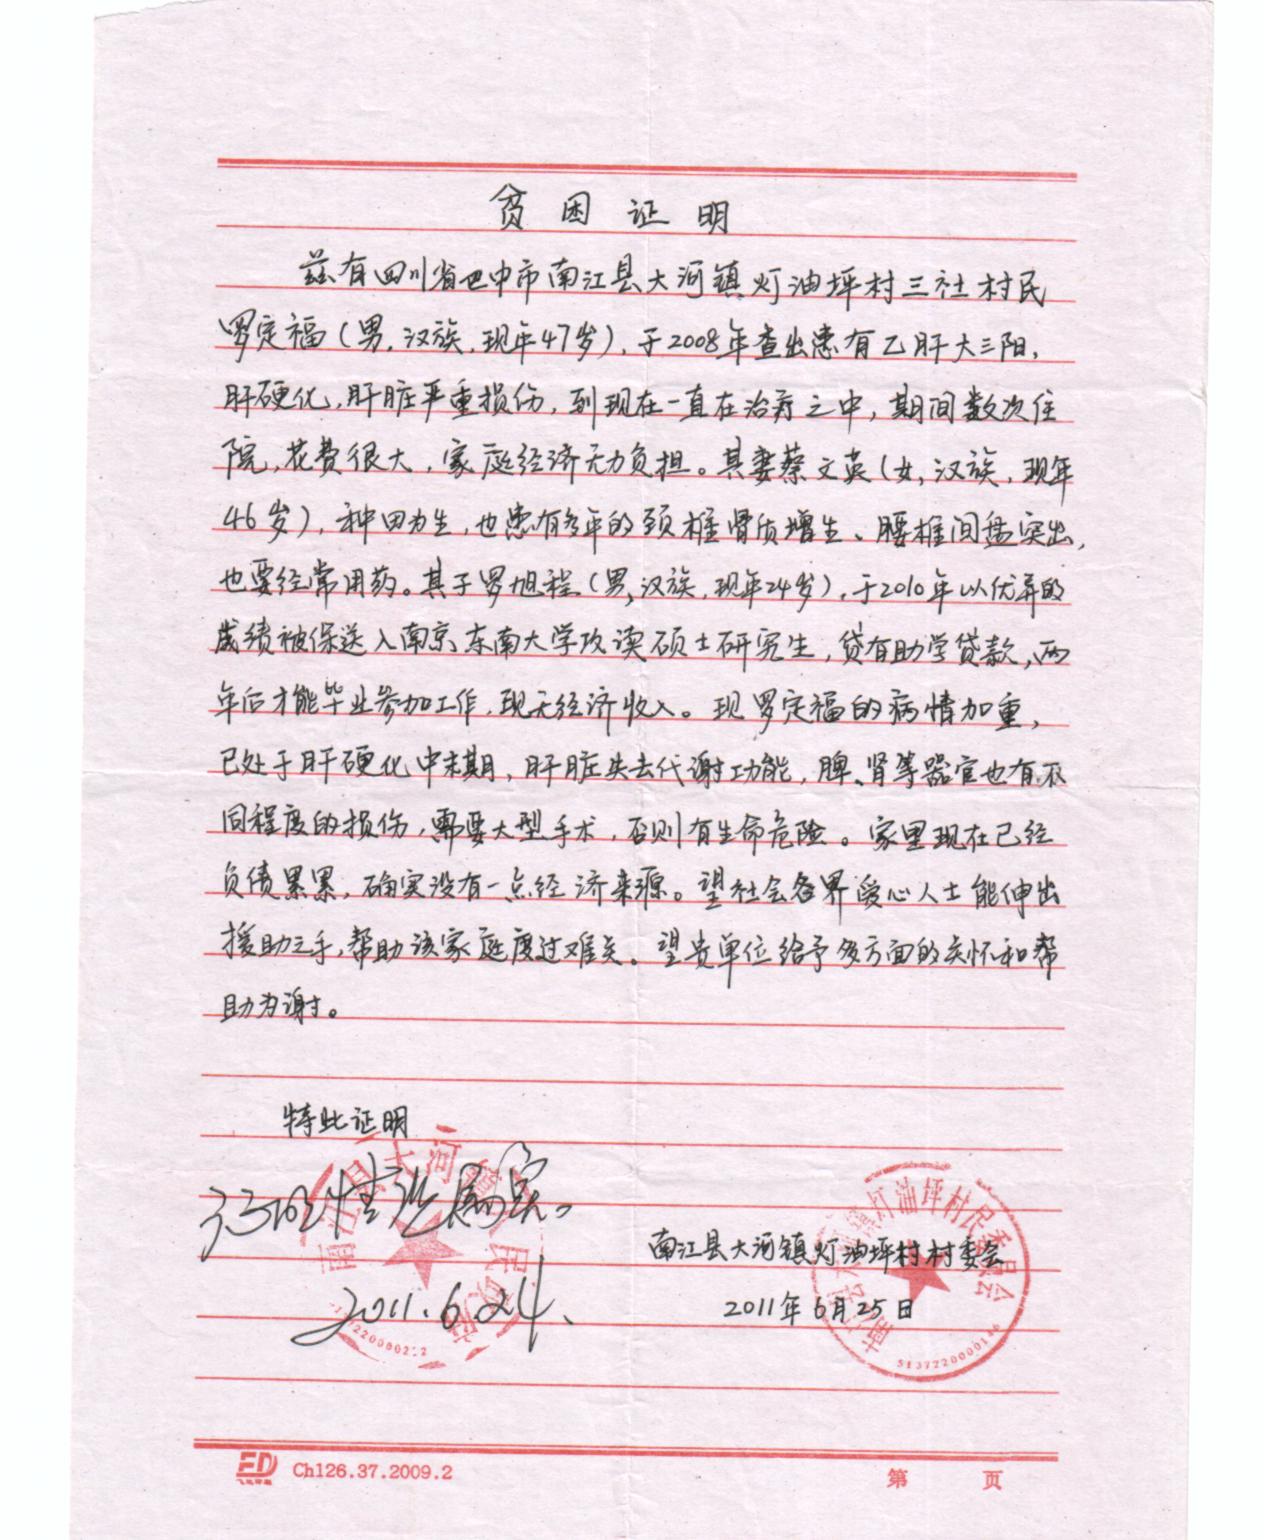 贫困证明
兹有四川省巴中市南江县大河镇灯油坪村三社村民
罗定福(男,汉族,现年47岁),于2008年查出患有乙肝大三阳,
肝硬化,肝脏严重损伤,到现在一直在治疗之中,期间数次住
院,花费很大,家庭经济无力负担。其妻蔡文英(女,汉族,现年
46岁),种田为生,也患有多年的颈椎骨质增生、腰椎间盘突出,
也要经常用药。其子罗旭程(男,汉族,现年24岁),于2010年以优异的
成绩被保送入南京东南大学攻读硕士研究生,贷有助学贷款,两
年后才能毕业参加工作,现无经济收入。现罗定福的病情加重,
已处于肝硬化中末期,肝脏失去代谢功能,脾、肾等器官也有不
同程度的损伤,需要大型手术,否则有生命危险。家里现在已经
负债累累,确实没有一点经济来源。望社会各界爱心人士能伸出
援助之手,帮助该家庭度过难关。望贵单位给予多方面的关怀和帮
助为谢。
特此证明
情况属实。
2011.6.24.
南江县大河镇人民政府
南江县大河镇灯油坪村村委会
2011年6月25日
南江县大河镇灯油坪村民委员会
5137220000146
Ch126.37.2009.2
第 页